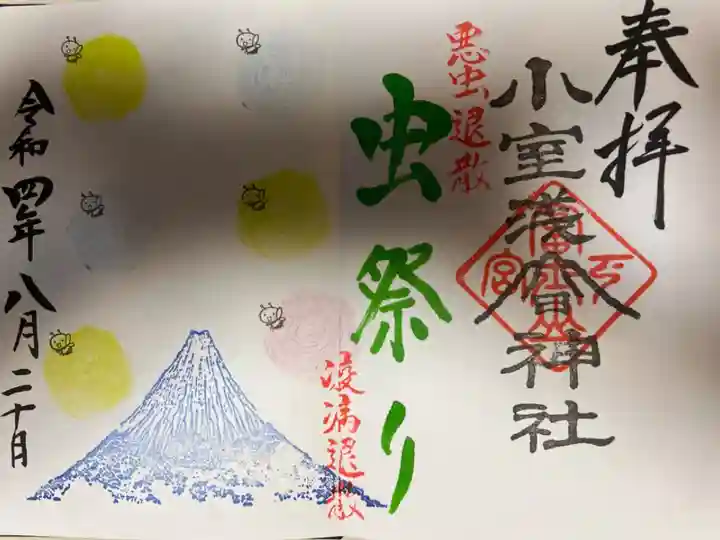 奉拝
小室浅間神社
富士山
下宮
悪虫退散
虫祭り
疫病退散
令和四年八月二十日